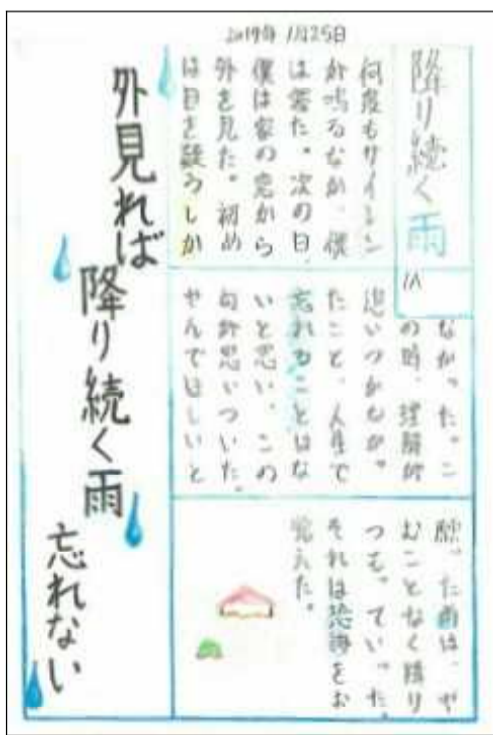 2019年11月25日
降り続く雨
何度もサイレン
が鳴るなか、僕
は寝た。次の日、
僕は家の窓から
外を見た。初め
は目を疑うしか
なかった。こ
の時、理解が
追いつかなか。
たこと、人生で
忘れることはな
いと思い、この
句が思いついた。
やんでほしいと
願った雨は、や
むことなく降り
つもっていった。
それは恐怖をお
覚えた。
外見れば
降り続く雨
忘れない